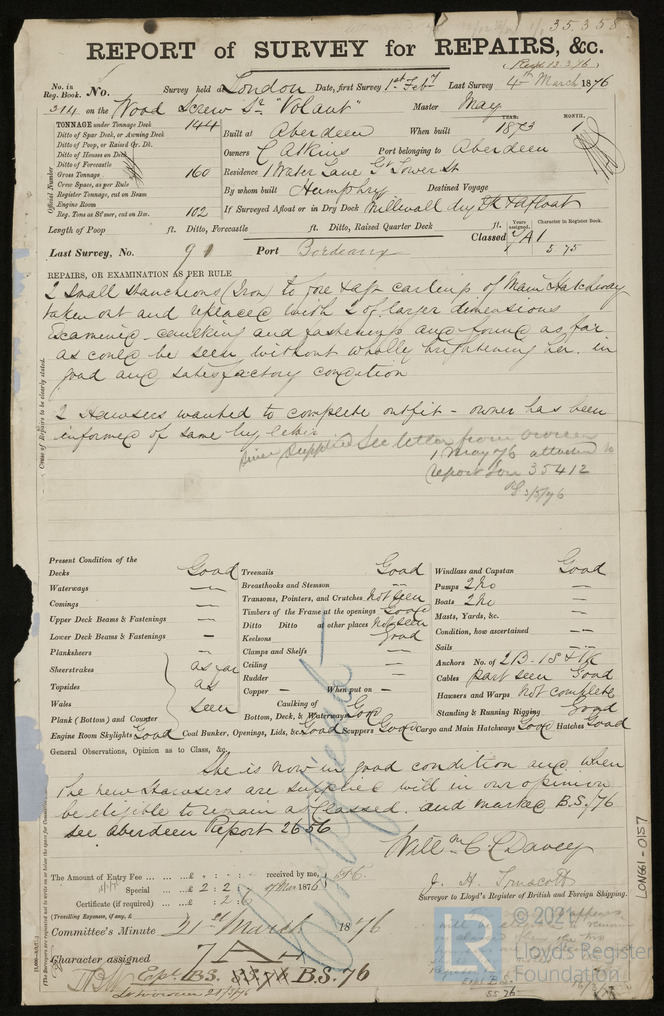 35358
REPORT of SURVEY for REPAIRS, &c.
No. in Reg. Book. No. Survey held at London Date, first Survey 1st Feby Last Survey 4th March 1876
314 on the Wood Screw Sr "Volant" Master May
TONNAGE under Tonnage Deck 144
Ditto of Spar Deck, or Awning Deck
Ditto of Poop, or Raised Qr. Dk.
Ditto of Houses on Deck
Ditto of Forecastle
Gross Tonnage 160
Crew Space, as per Rule
Register Tonnage, cut on Beam
Engine Room
Reg. Tons as St'mer, cut on Bm. 102
Official Number
Built at Aberdeen When built YEAR. 1873 MONTH. 1
Owners C Atkins Port belonging to Aberdeen
Residence 1 Water Lane Gt Tower St
By whom built Humphry Destined Voyage
If Surveyed Afloat or in Dry Dock Millwall dry Dk & afloat
Length of Poop ft. Ditto, Forecastle ft. Ditto, Raised Quarter Deck ft. Years assigned. Character in Register Book.
Last Survey, No. 91 Port Bordeaux Classed 7A1 5 75
REPAIRS, OR EXAMINATION AS PER RULE
2 Small Stanchions (Iron) to fore & aft carlings of Main Hatchway
taken out and replaced with 2 of larger dimensions
Examined caulking and fastenings and found as far
as could be seen, without wholly brightening her, in
good and satisfactory condition
2 Hawsers wanted to complete outfit - owner has been
informed of same by letter
since supplied see letter from owners
1 May 76 attached to
report Lon 35412
3/5/76
Cause of Repairs to be clearly stated.
Present Condition of the
Decks Good
Waterways —
Comings —
Upper Deck Beams & Fastenings —
Lower Deck Beams & Fastenings —
Planksheers
Sheerstrakes as far
Topsides as
Wales seen
Plank (Bottom) and Counter
Treenails Good
Breasthooks and Stemson —
Transoms, Pointers, and Crutches Not seen
Timbers of the Frame at the openings Good
Ditto Ditto at other places Not seen
Keelsons Good
Clamps and Shelfs —
Ceiling —
Rudder —
Copper — When put on —
Caulking of Bottom, Deck, & Waterways Good
Windlass and Capstan Good
Pumps 2 No —
Boats 2 No —
Masts, Yards, &c. —
Condition, how ascertained —
Sails —
Anchors No. of 2B. 1S & 1K
Cables part seen Good
Hawsers and Warps Not complete
Standing & Running Rigging Good
Engine Room Skylights Good Coal Bunker, Openings, Lids, &c. Good Scuppers Good Cargo and Main Hatchways Good Hatches Good
General Observations, Opinion as to Class, &c.
She is now in good condition and when
the new Hawsers are supplied will in our opinion
be eligible to remain as Classed. and marked B.S./76
See Aberdeen Report 2656
Willm C C Davey
The Amount of Entry Fee ... ... £ : : received by me,
Special ... ... £ 2 : 2 : 1876
Certificate (if required) ... £ : 2 : 6
(Travelling Expenses, if any, £
Surveyor to Lloyd's Register of British and Foreign Shipping.
Committee's Minute 21st March 1876
Character assigned 7A1
B.S. 76
LON661-0157
© 2021
Lloyd's Register
Foundation
LR